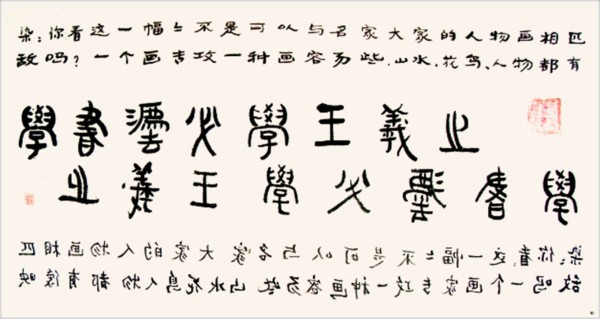 梁：你看这一幅々不是可以与名家大家的人物画相匹
敌吗？一个画专攻一种画容易些，山水，花鸟、人物都有
學書灋必學王羲之
學書灋必學王羲之
梁：你看，这一幅々不是可以与名家大家的人物画相匹
敌吗一个画家专攻一种画容易些山水花鸟人物都有像映